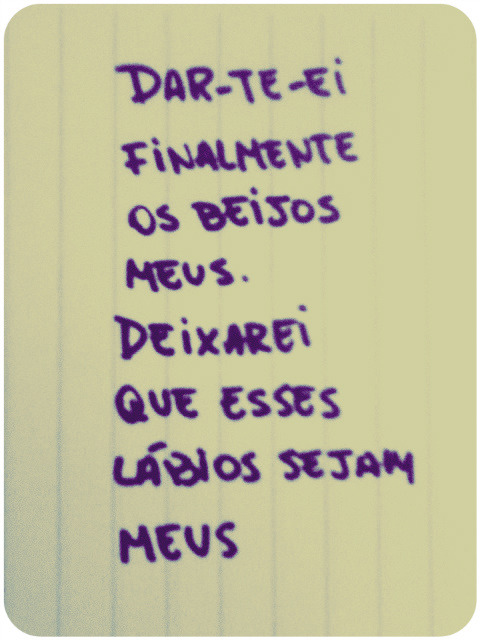 DAR-TE-Ei
FiNALMENTE
OS BEiJOS
MEUS.
DEiXAREi
QUE ESSES
LÁBIOS SEJAM
MEUS